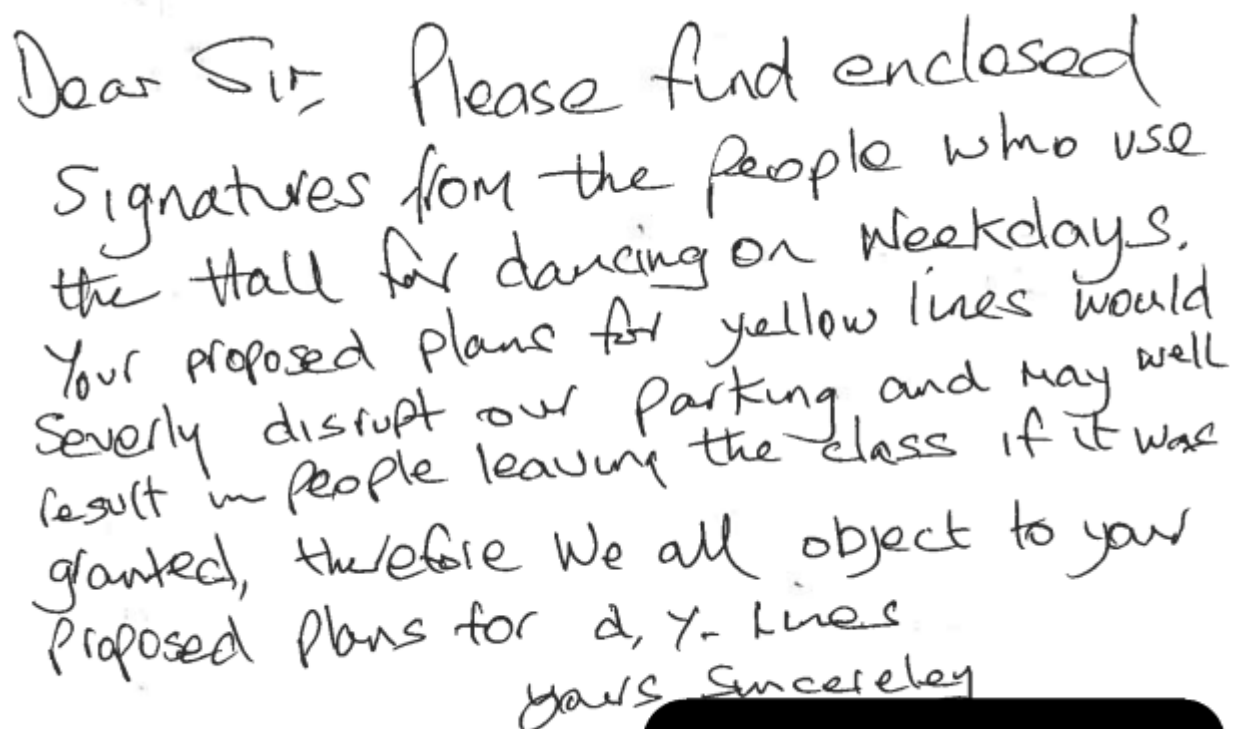 Dear Sir, Please find enclosed
Signatures from the People who use
the Hall for dancing on Weekdays.
Your proposed plans for yellow lines would
Severly disrupt our Parking and may well
result in People leaving the class if it was
granted, therefore We all object to your
Proposed Plans for d, y- Lines
yours Sincereley